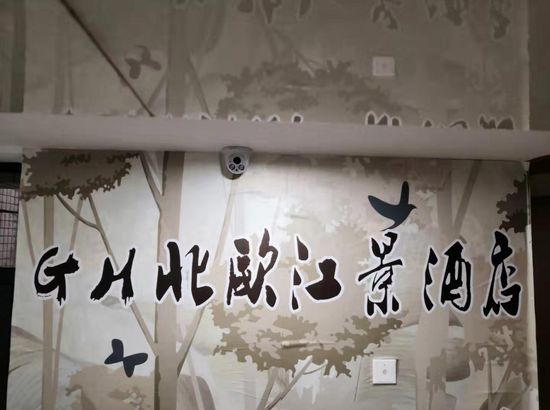 GH北欧江景酒店